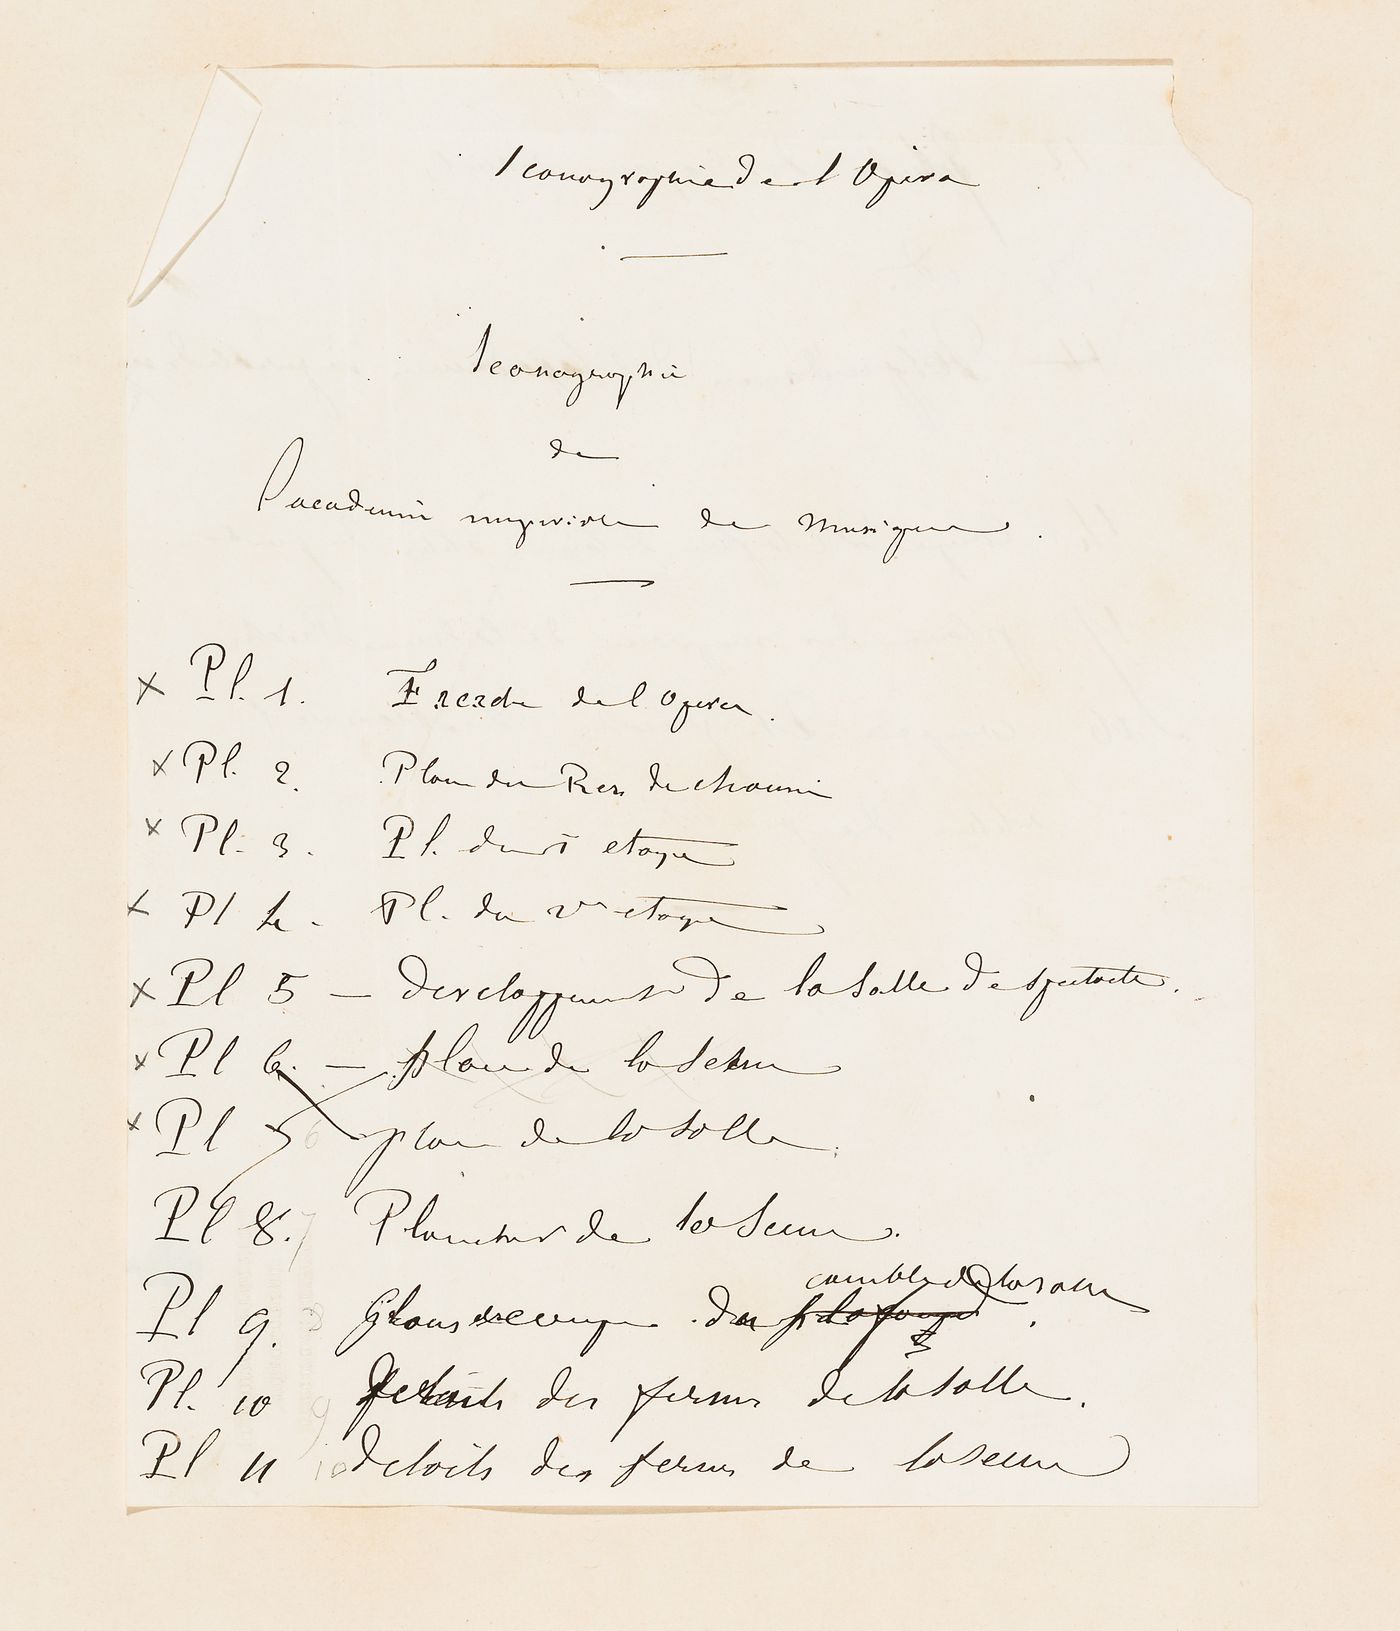 Iconographie de l Opera
Iconographie
de
l'academie imperiale de Musique.
x Pl. 1. Facade de l Opera.
x Pl. 2. Plan du Rez de chaussée
x Pl. 3. Pl. du 1 etage
x Pl 4. Pl. du 2me etage
x Pl 5 — developpement de la Salle de spectacle.
x Pl 6. — plan de la scene
x Pl 7 6 plan de la Salle.
Pl 8. 7 Plancher de la Scene.
comble de la salle
Pl 9. 8 du plafond.
Pl. 10 9 details des fermes de la Salle.
Pl 11 10 details des fermes de la scene